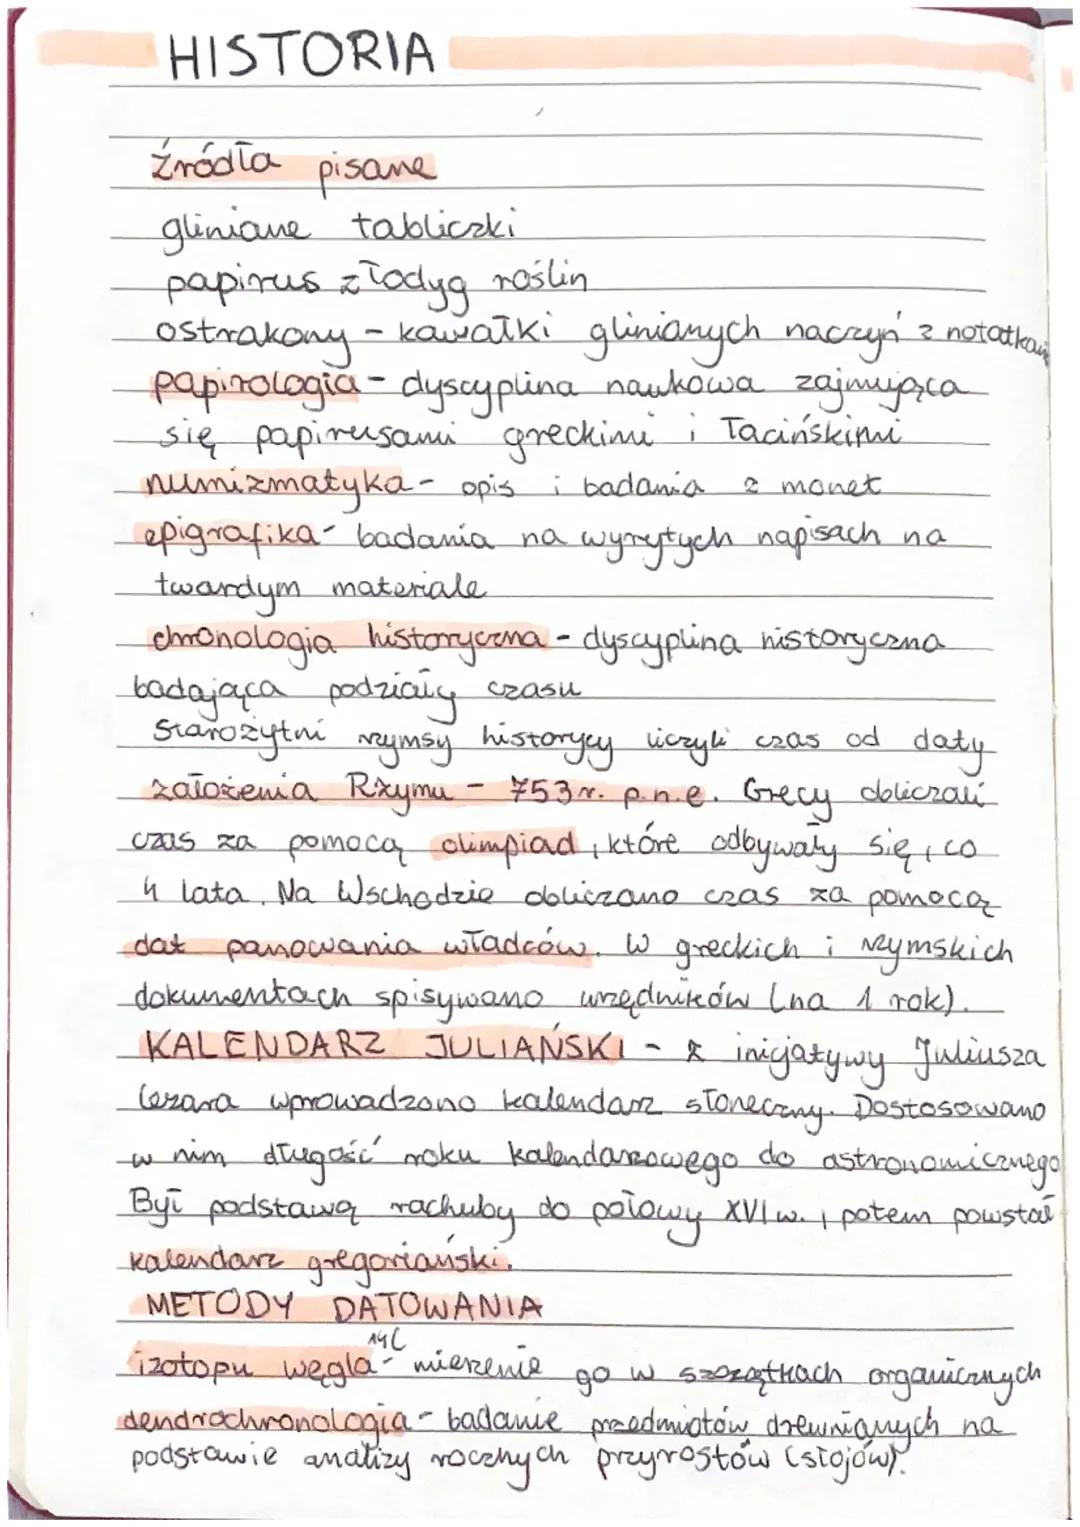 HISTORIA
źródła pisane
gliniane tabliczki
papirus z łodyg roślin
ostrakony - kawałki glinianych naczyń z notatkami
papirologia - dyscyplina naukowa zajmująca
się papirusami greckimi i łacińskimi
numizmatyka - opis i badania z monet
epigrafika - badania na wyrytych napisach na
twardym materiale
chronologia historyczna - dyscyplina historyczna
badająca podziały czasu
Starożytni rzymsy historycy liczyli czas od daty
założenia Rzymu - 753 r. p.n.e. Grecy obliczali
czas za pomocą olimpiad, które odbywały się, co
4 lata. Na Wschodzie obliczano czas za pomocą
dat panowania władców. W greckich i rzymskich
dokumentach spisywano urzędników (na 1 rok).
KALENDARZ JULIAŃSKI - z inicjatywy Juliusza
Cezara wprowadzono kalendarz słoneczny. Dostosowano
w nim długość roku kalendarzowego do astronomicznego
Był podstawą rachuby do połowy XVI w., potem powstał
kalendarz gregoriański.
METODY DATOWANIA
izotopu węgla 14C - mierzenie go w szczątkach organicznych
dendrochronologia - badanie przedmiotów drewnianych na
podstawie analizy rocznych przyrostów (słojów).